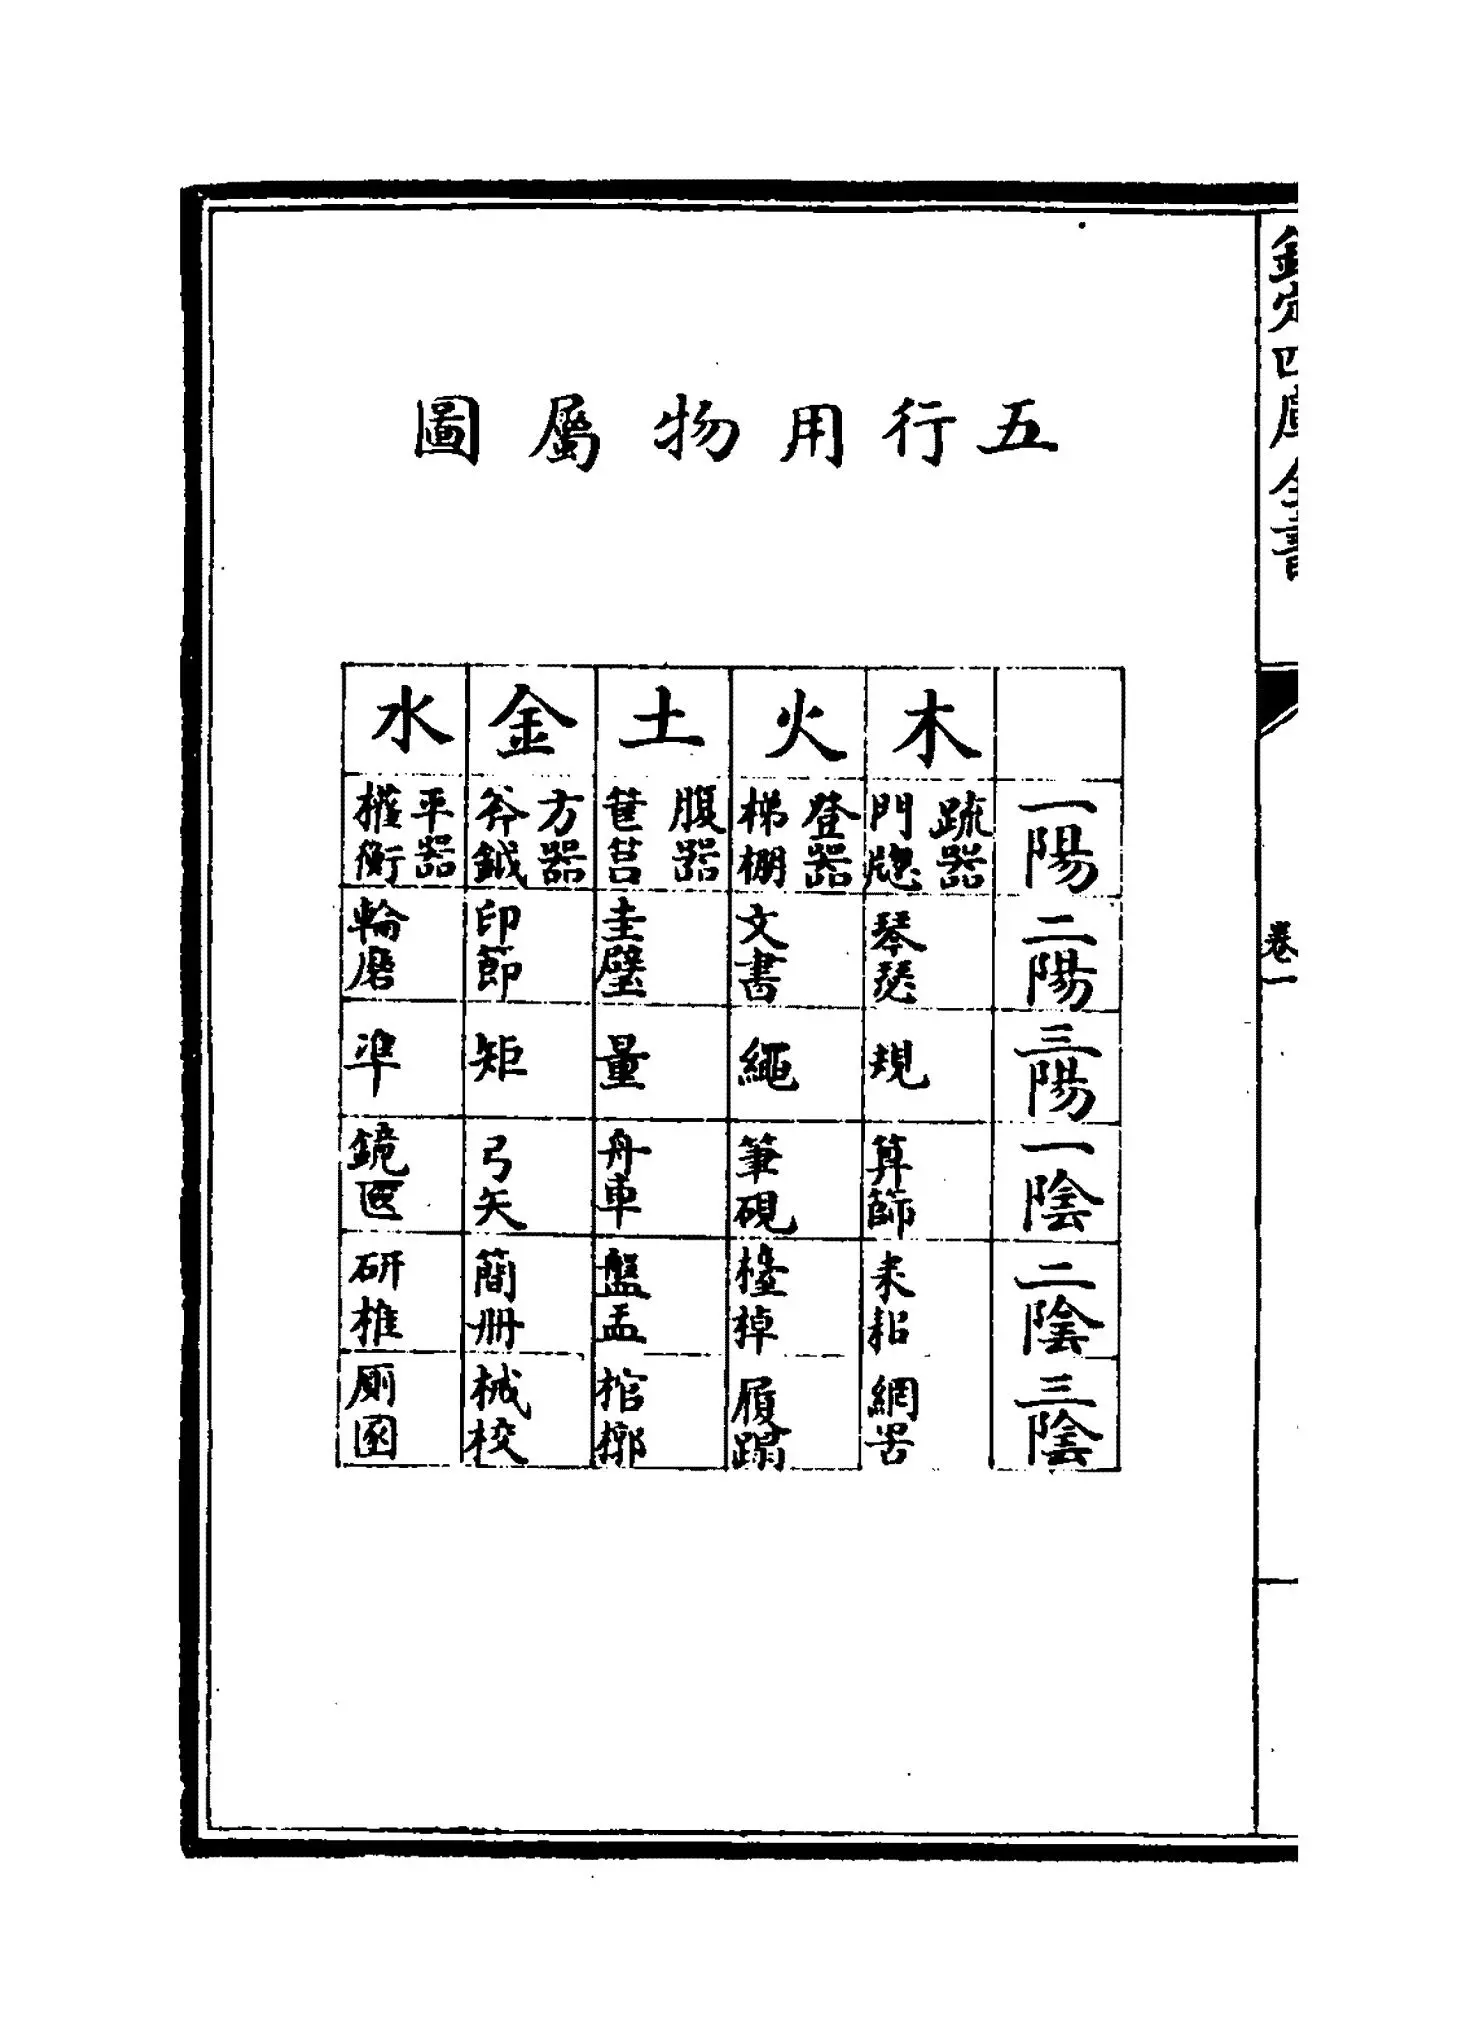 欽定四庫全書
卷一
五行用物屬圖
木 火 土 金 水
一陽 疏器 門牕 登器 梯棚 腹器 筐筥 方器 斧鉞 平器 權衡
二陽 琴瑟 文書 圭璧 印節 輪磨
三陽 規 繩 量 矩 準
一陰 算篩 筆硯 舟車 弓矢 鏡匳
二陰 耒耜 檯槕 盤盂 簡冊 研椎
三陰 網罟 履蹋 棺槨 械校 厠圂